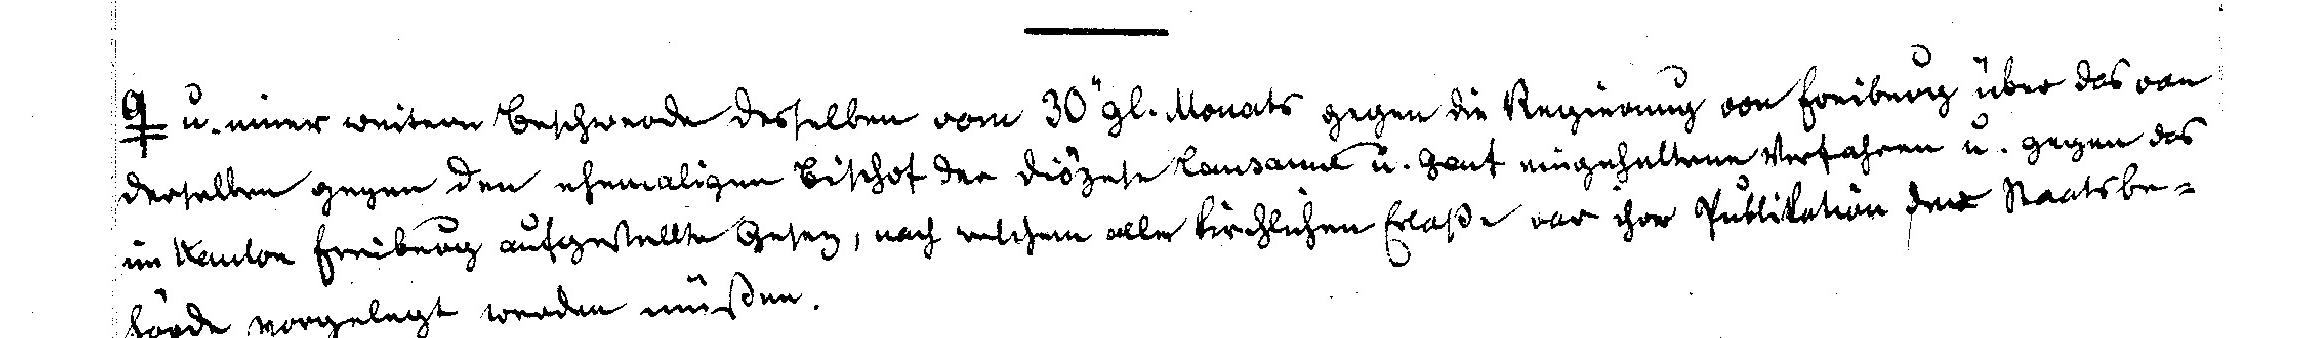 9 u. einer weitern Beschwerde desselben vom 30" gl. Monats gegen die Regierung von Freiburg über das von
derselben gegen den ehemaligen Bischof der Diözese Lausanne u. Genf eingehaltene Verfahren u. gegen das
im Kanton Freiburg aufgestellte Gesez, nach welchem alle kirchlichen Erlaße vor ihrer Publikation der Staatsbe-
hörde vorgelegt werden müßen.